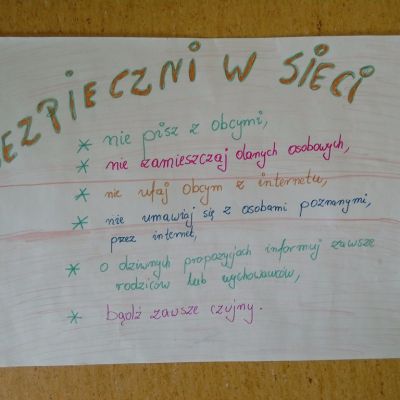 BEZPIECZNI W SIECI
* nie pisz z obcymi,
* nie zamieszczaj danych osobowych,
* nie ufaj obcym z internetu,
* nie umawiaj się z osobami poznanymi,
przez internet,
* o dziwnych propozycjach informuj zawsze
rodziców lub wychowawców,
* bądź zawsze czujny.